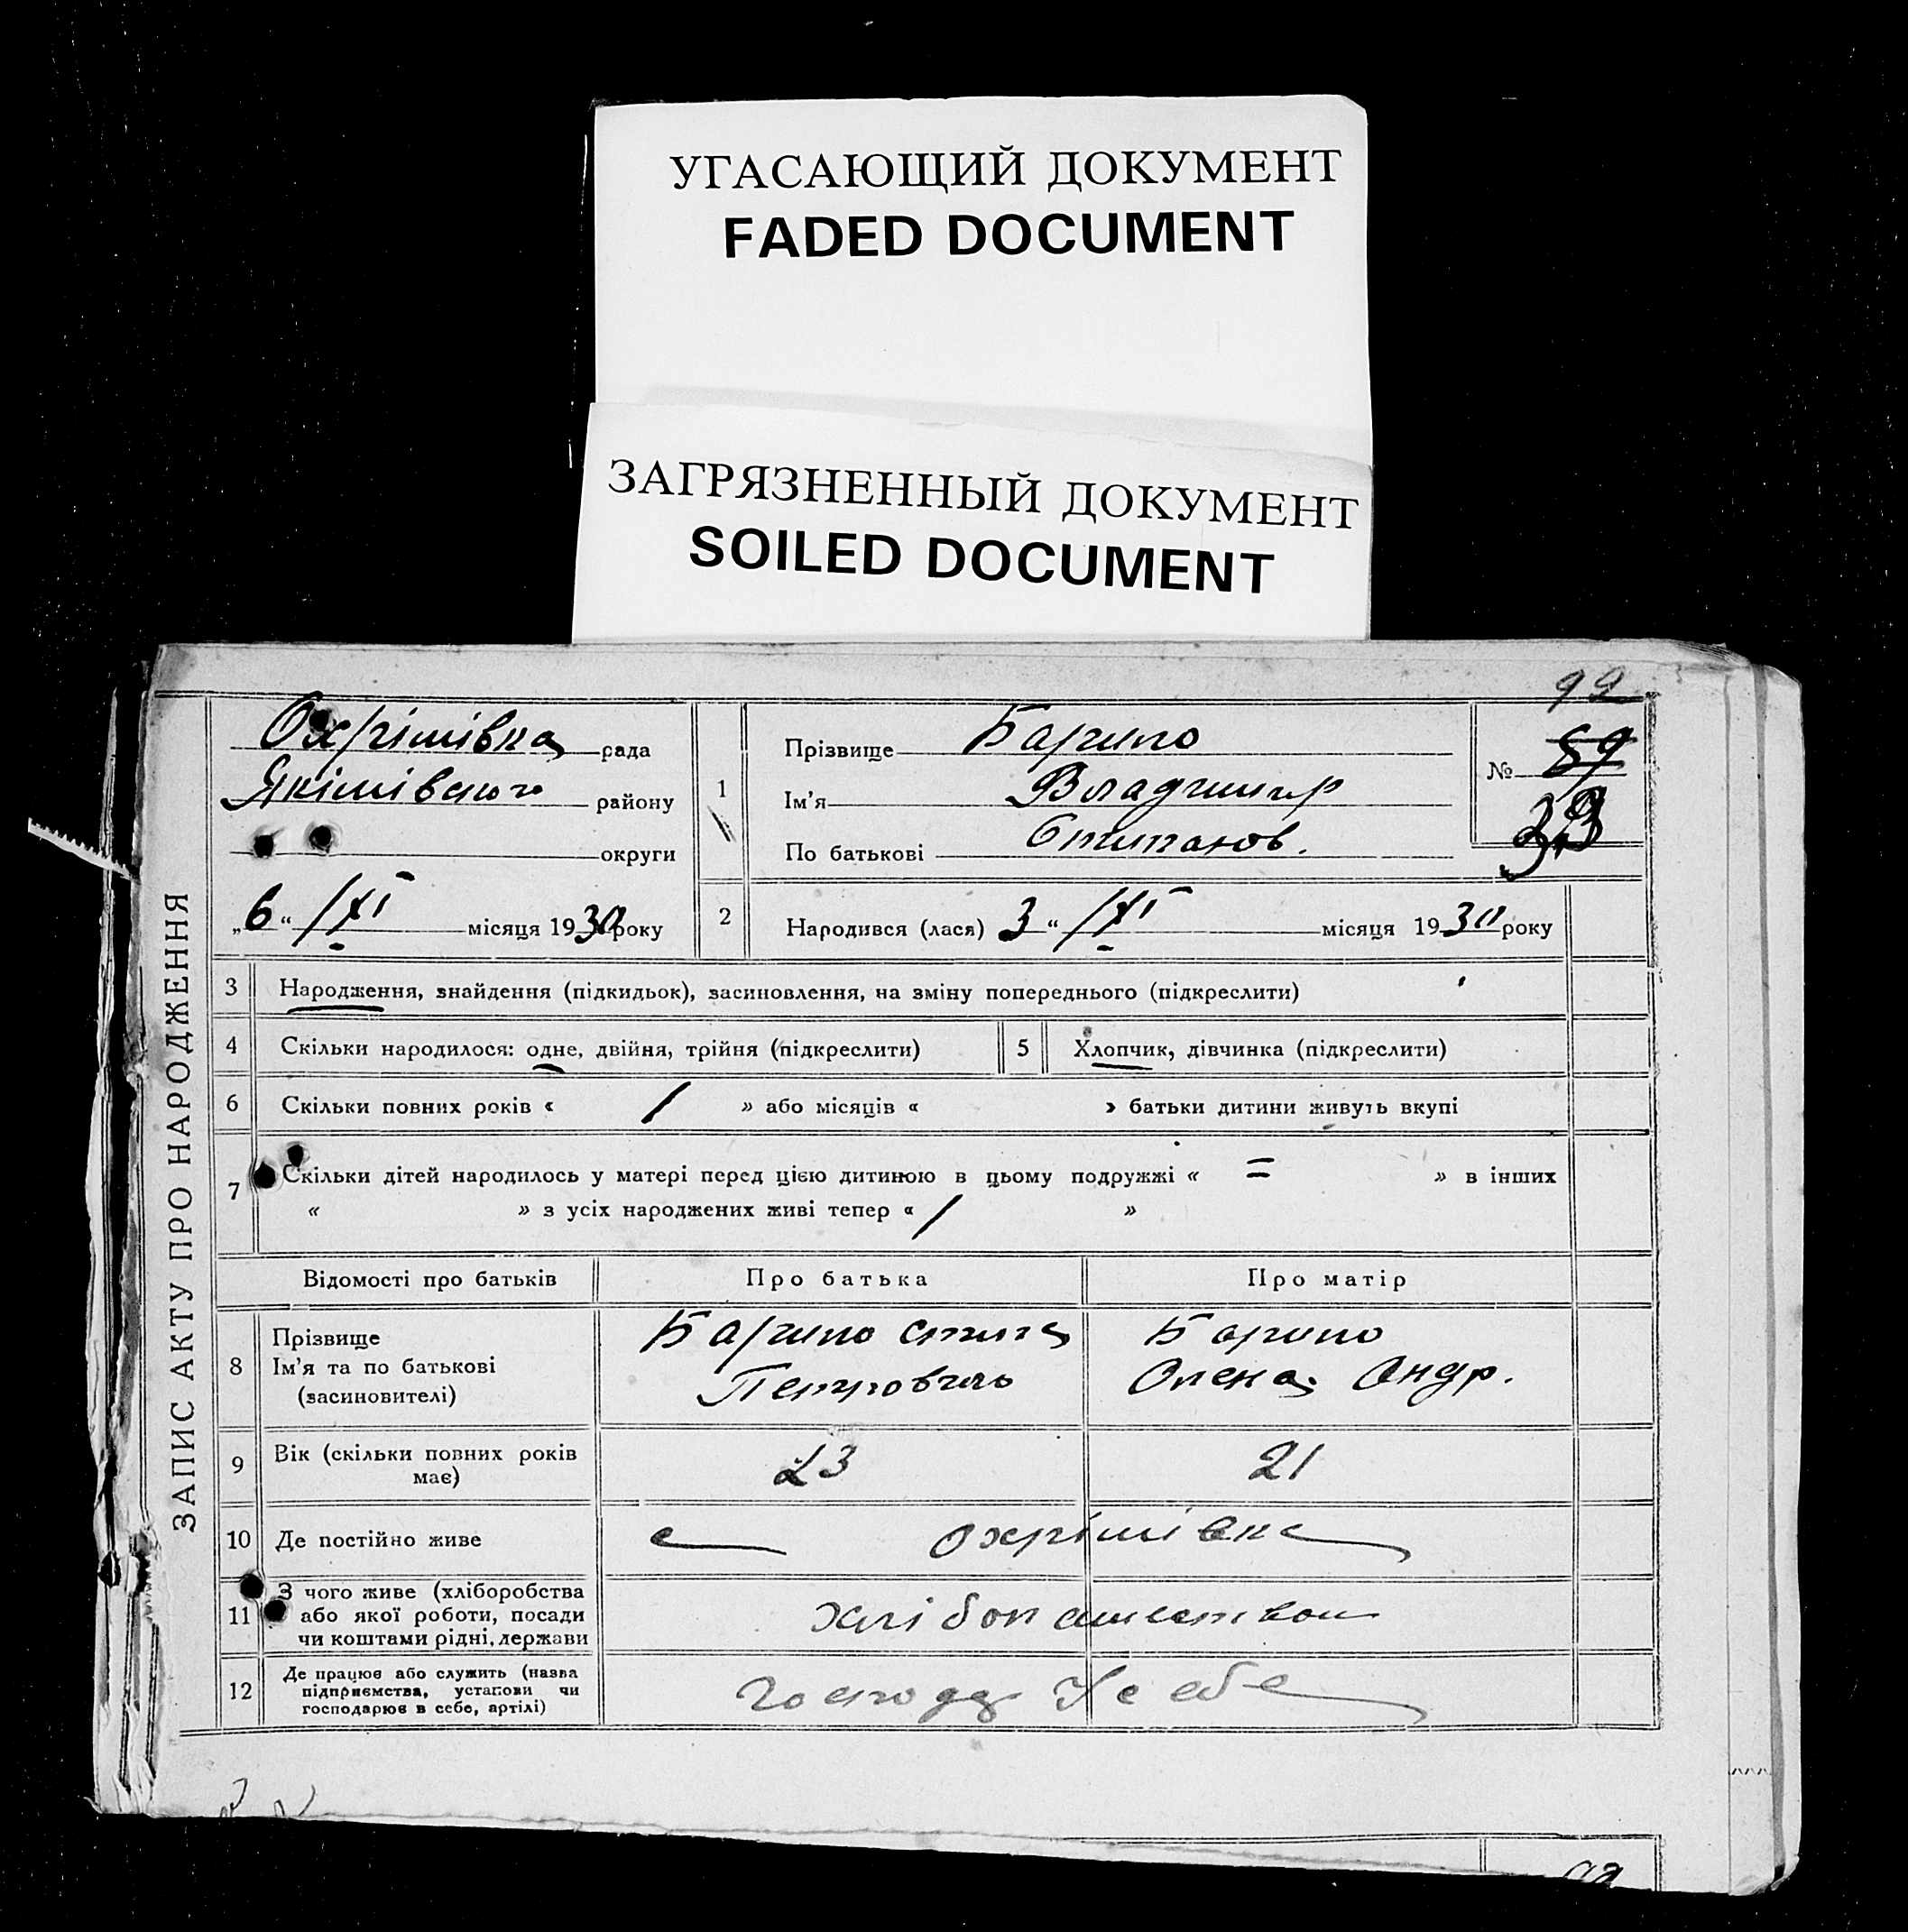 УГАСАЮЩИЙ ДОКУМЕНТ
FADED DOCUMENT
ЗАГРЯЗНЕННЫЙ ДОКУМЕНТ
SOILED DOCUMENT
92
ЗАПИС АКТУ ПРО НАРОДЖЕННЯ
Охрімівка рада
Якімівского району
округи
„6“ /XI місяця 1930 року
1 Прізвище Барило
Ім'я Владимир
По батькові Степанов.
№ 89
33
2 Народився (лася) 3 “ /XI місяця 1930 року
3 Народження, знайдення (підкидьок), засиновлення, на зміну попереднього (підкреслити)
4 Скільки народилося: одне, двійня, трійня (підкреслити) 5 Хлопчик, дівчинка (підкреслити)
6 Скільки повних років « / » або місяців « » батьки дитини живуть вкупі
7 Скільки дітей народилось у матері перед цією дитиною в цьому подружжі « = » в інших
« » з усіх народжених живі тепер « / »
Відомості про батьків Про батька Про матір
8 Прізвище
Ім'я та по батькові
(засиновителі)
Барило Степа
Петрович
Барило
Олена Андр.
9 Вік (скільки повних років
має)
23 21
10 Де постійно живе с Охрімівка
11 З чого живе (хліборобства
або якої роботи, посади
чи коштами рідні, держави
хлібопашеством
12 Де працює або служить (назва
підприємства, установи чи
господарює в себе, артілі)
господ. У себе